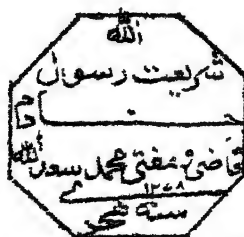 الله
شریعت رسول
خادم
قاضی مفتی محمد سعد الله
۱۲۶۸
سنه هجری